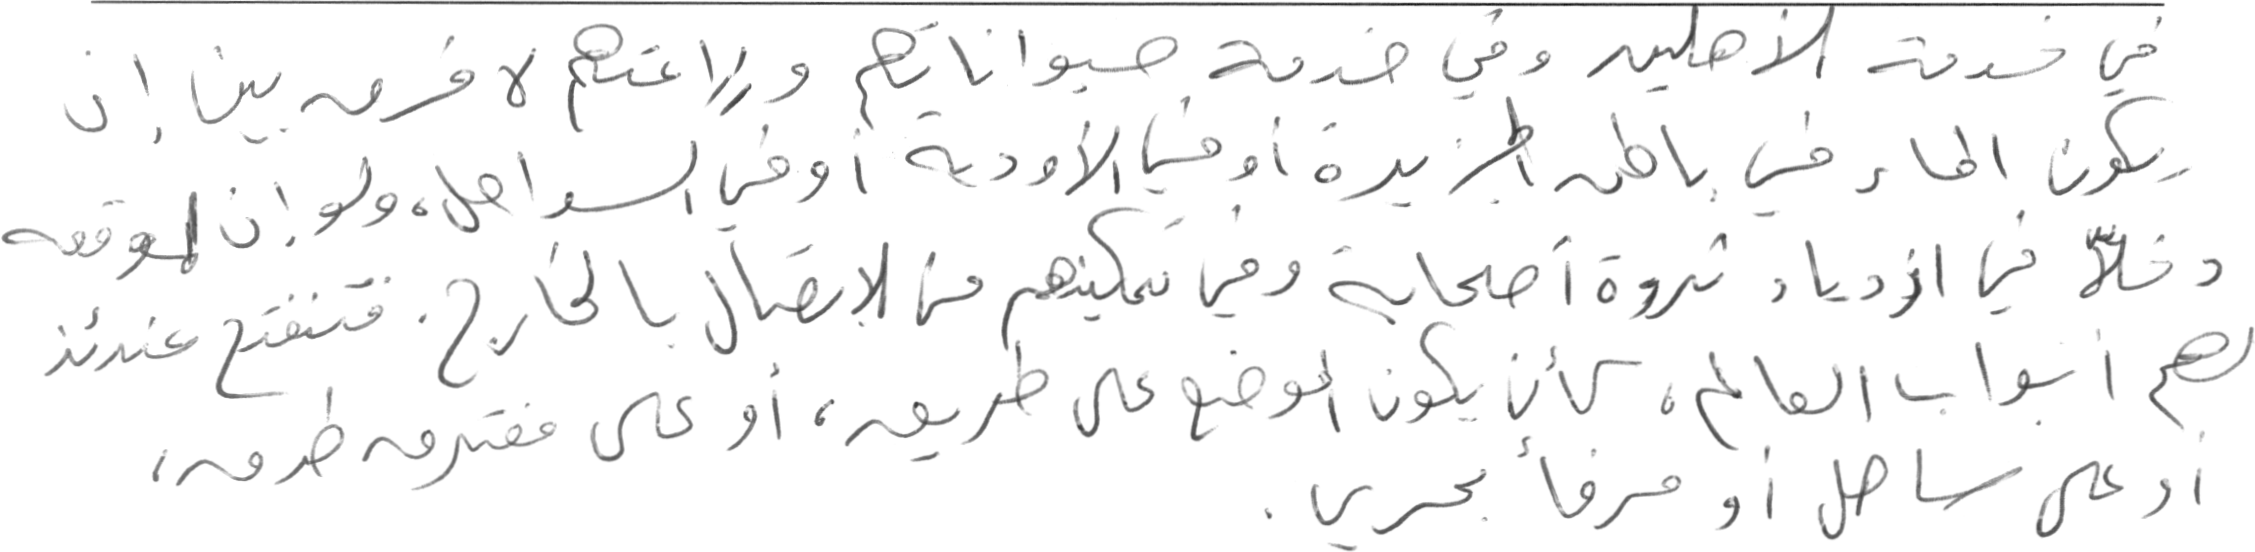 في خدمة الأهلين وفي خدمة حيواناتهم وزراعتهم لا فرق بين إن
يكون الماء في باطن الجزيرة أو في الأودية أو في السواحل، ولو إن لموقعه
دخلاً في ازدياد ثروة أصحابه وفي تمكينهم من الاتصال بالخارج. فتنفتح عندئذ
لهم أبواب العالم، كأن يكون الموضع على طريق، أو على مفترق طرق،
أو على ساحل أو مرفأ بحري.